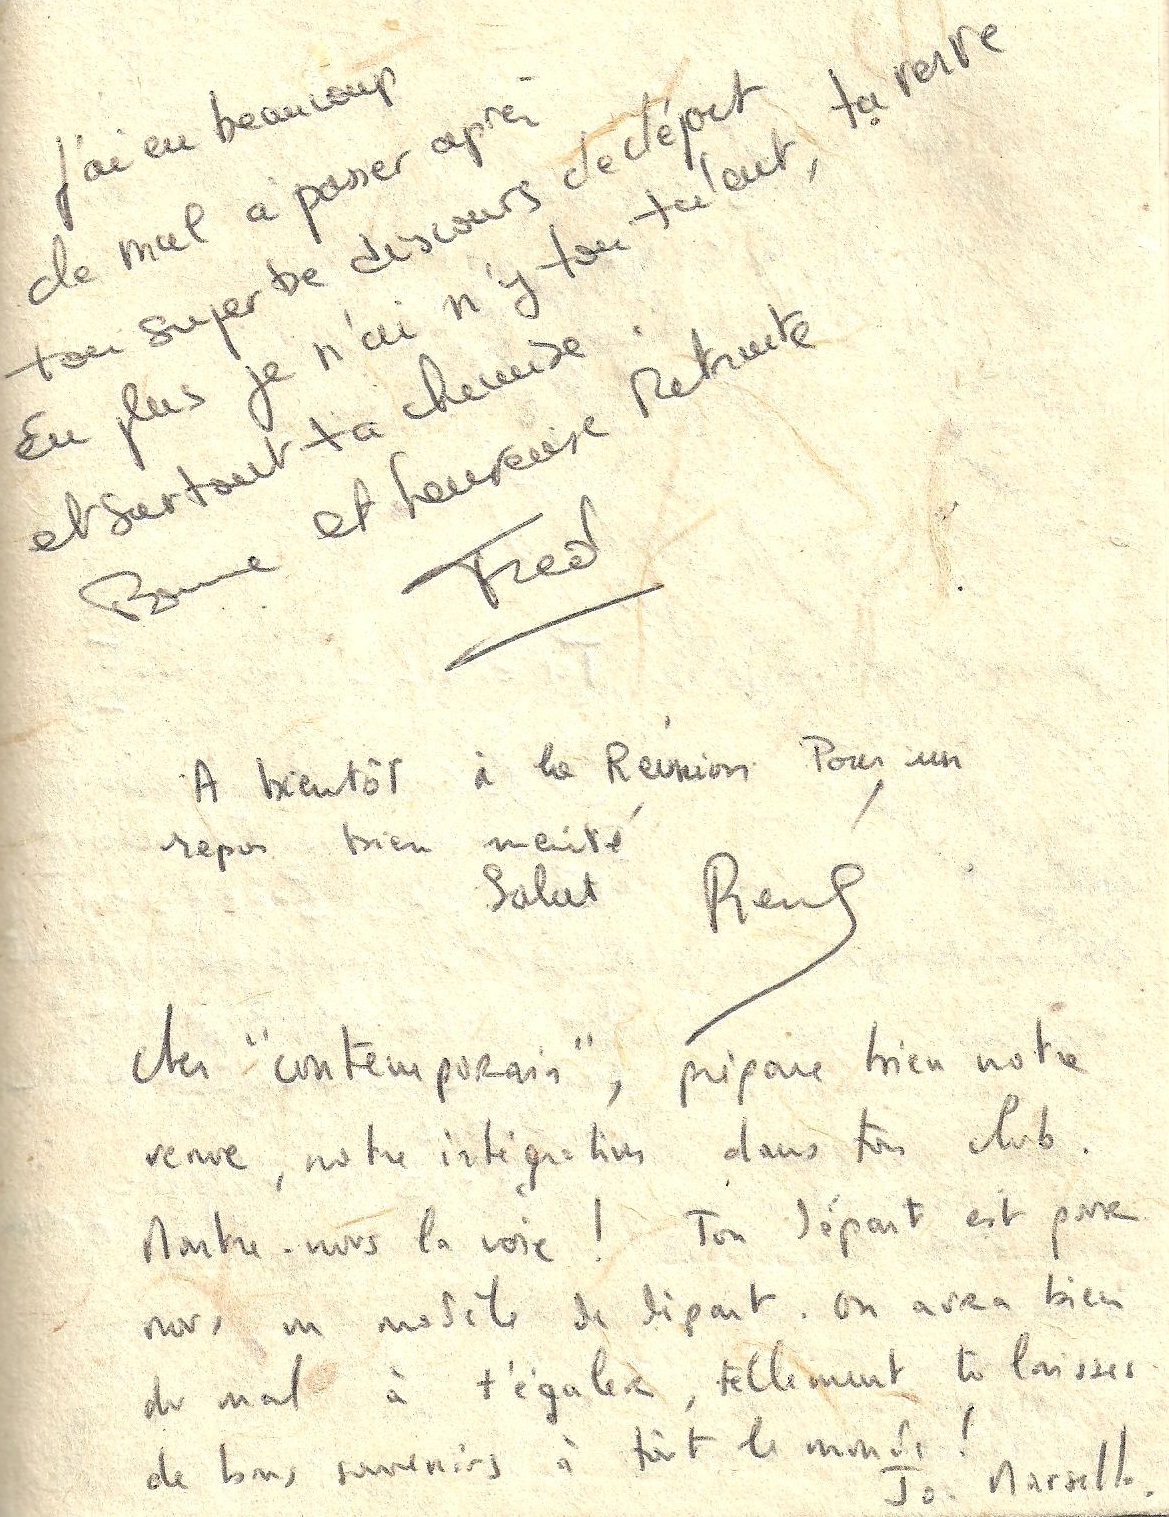 J'ai eu beaucoup
de mal à passer après
ton superbe discours de départ
En plus je n'ai n'y ton talent, ta verve
et surtout ta chemise.
Bonne et heureuse Retraite
Fred
A bientôt à la Réunion Pour un
repos bien mérité
Salut René
Cher "contemporain", prépare bien notre
venue, notre intégration dans ton club.
Montre-nous la voie ! Ton départ est pour
nous un modèle de départ. On aura bien
du mal à t'égaler, tellement tu laisses
de bons souvenirs à tout le monde !
Jo.